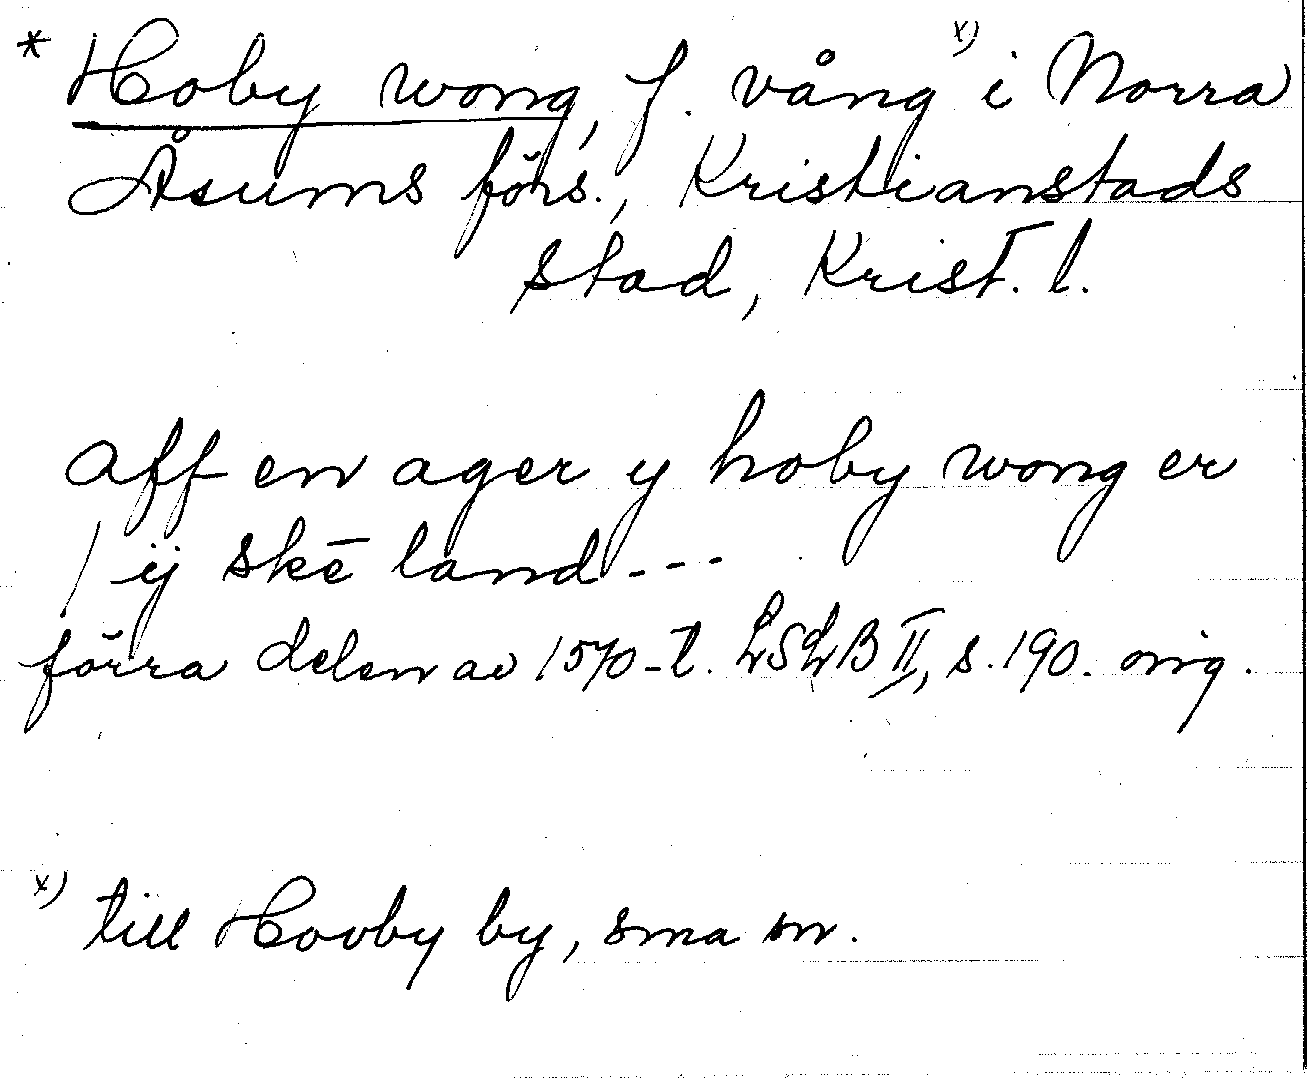 * Hoby wong, f. vång x) i Norra
Åsums förs., Kristianstads
stad, Krist. l.
aff en ager y hoby wong er
/ ij skē land - - -
förra delen av 1570-t. LSLB II, s. 190. orig.
x) till Hovby by, sma sn.